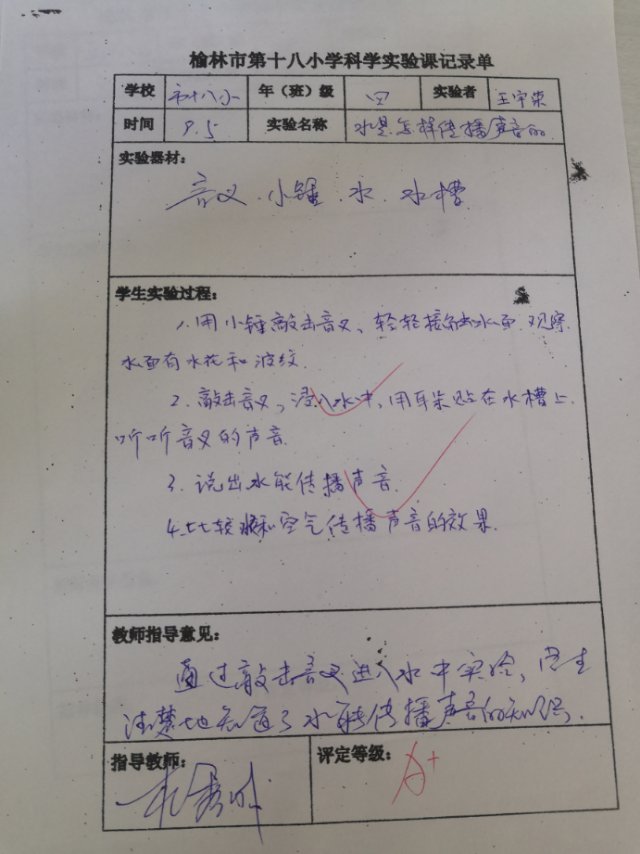 榆林市第十八小学科学实验课记录单
学校 市十八小 年（班）级 四 实验者 王宇荣
时间 9.5 实验名称 水是怎样传播声音的
实验器材：
音叉．小锤．水．水槽
学生实验过程：
1.用小锤敲击音叉、轻轻接触水面.观察
水面有水花和波纹.
2.敲击音叉，浸入水中，用耳朵贴在水槽上
听听音叉的声音.
3.说出水能传播声音.
4.比较水和空气传播声音的效果.
教师指导意见：
通过敲击音叉进入水中实验，学生
清楚地知道了水能传播声音的知识.
指导教师：
评定等级： A+